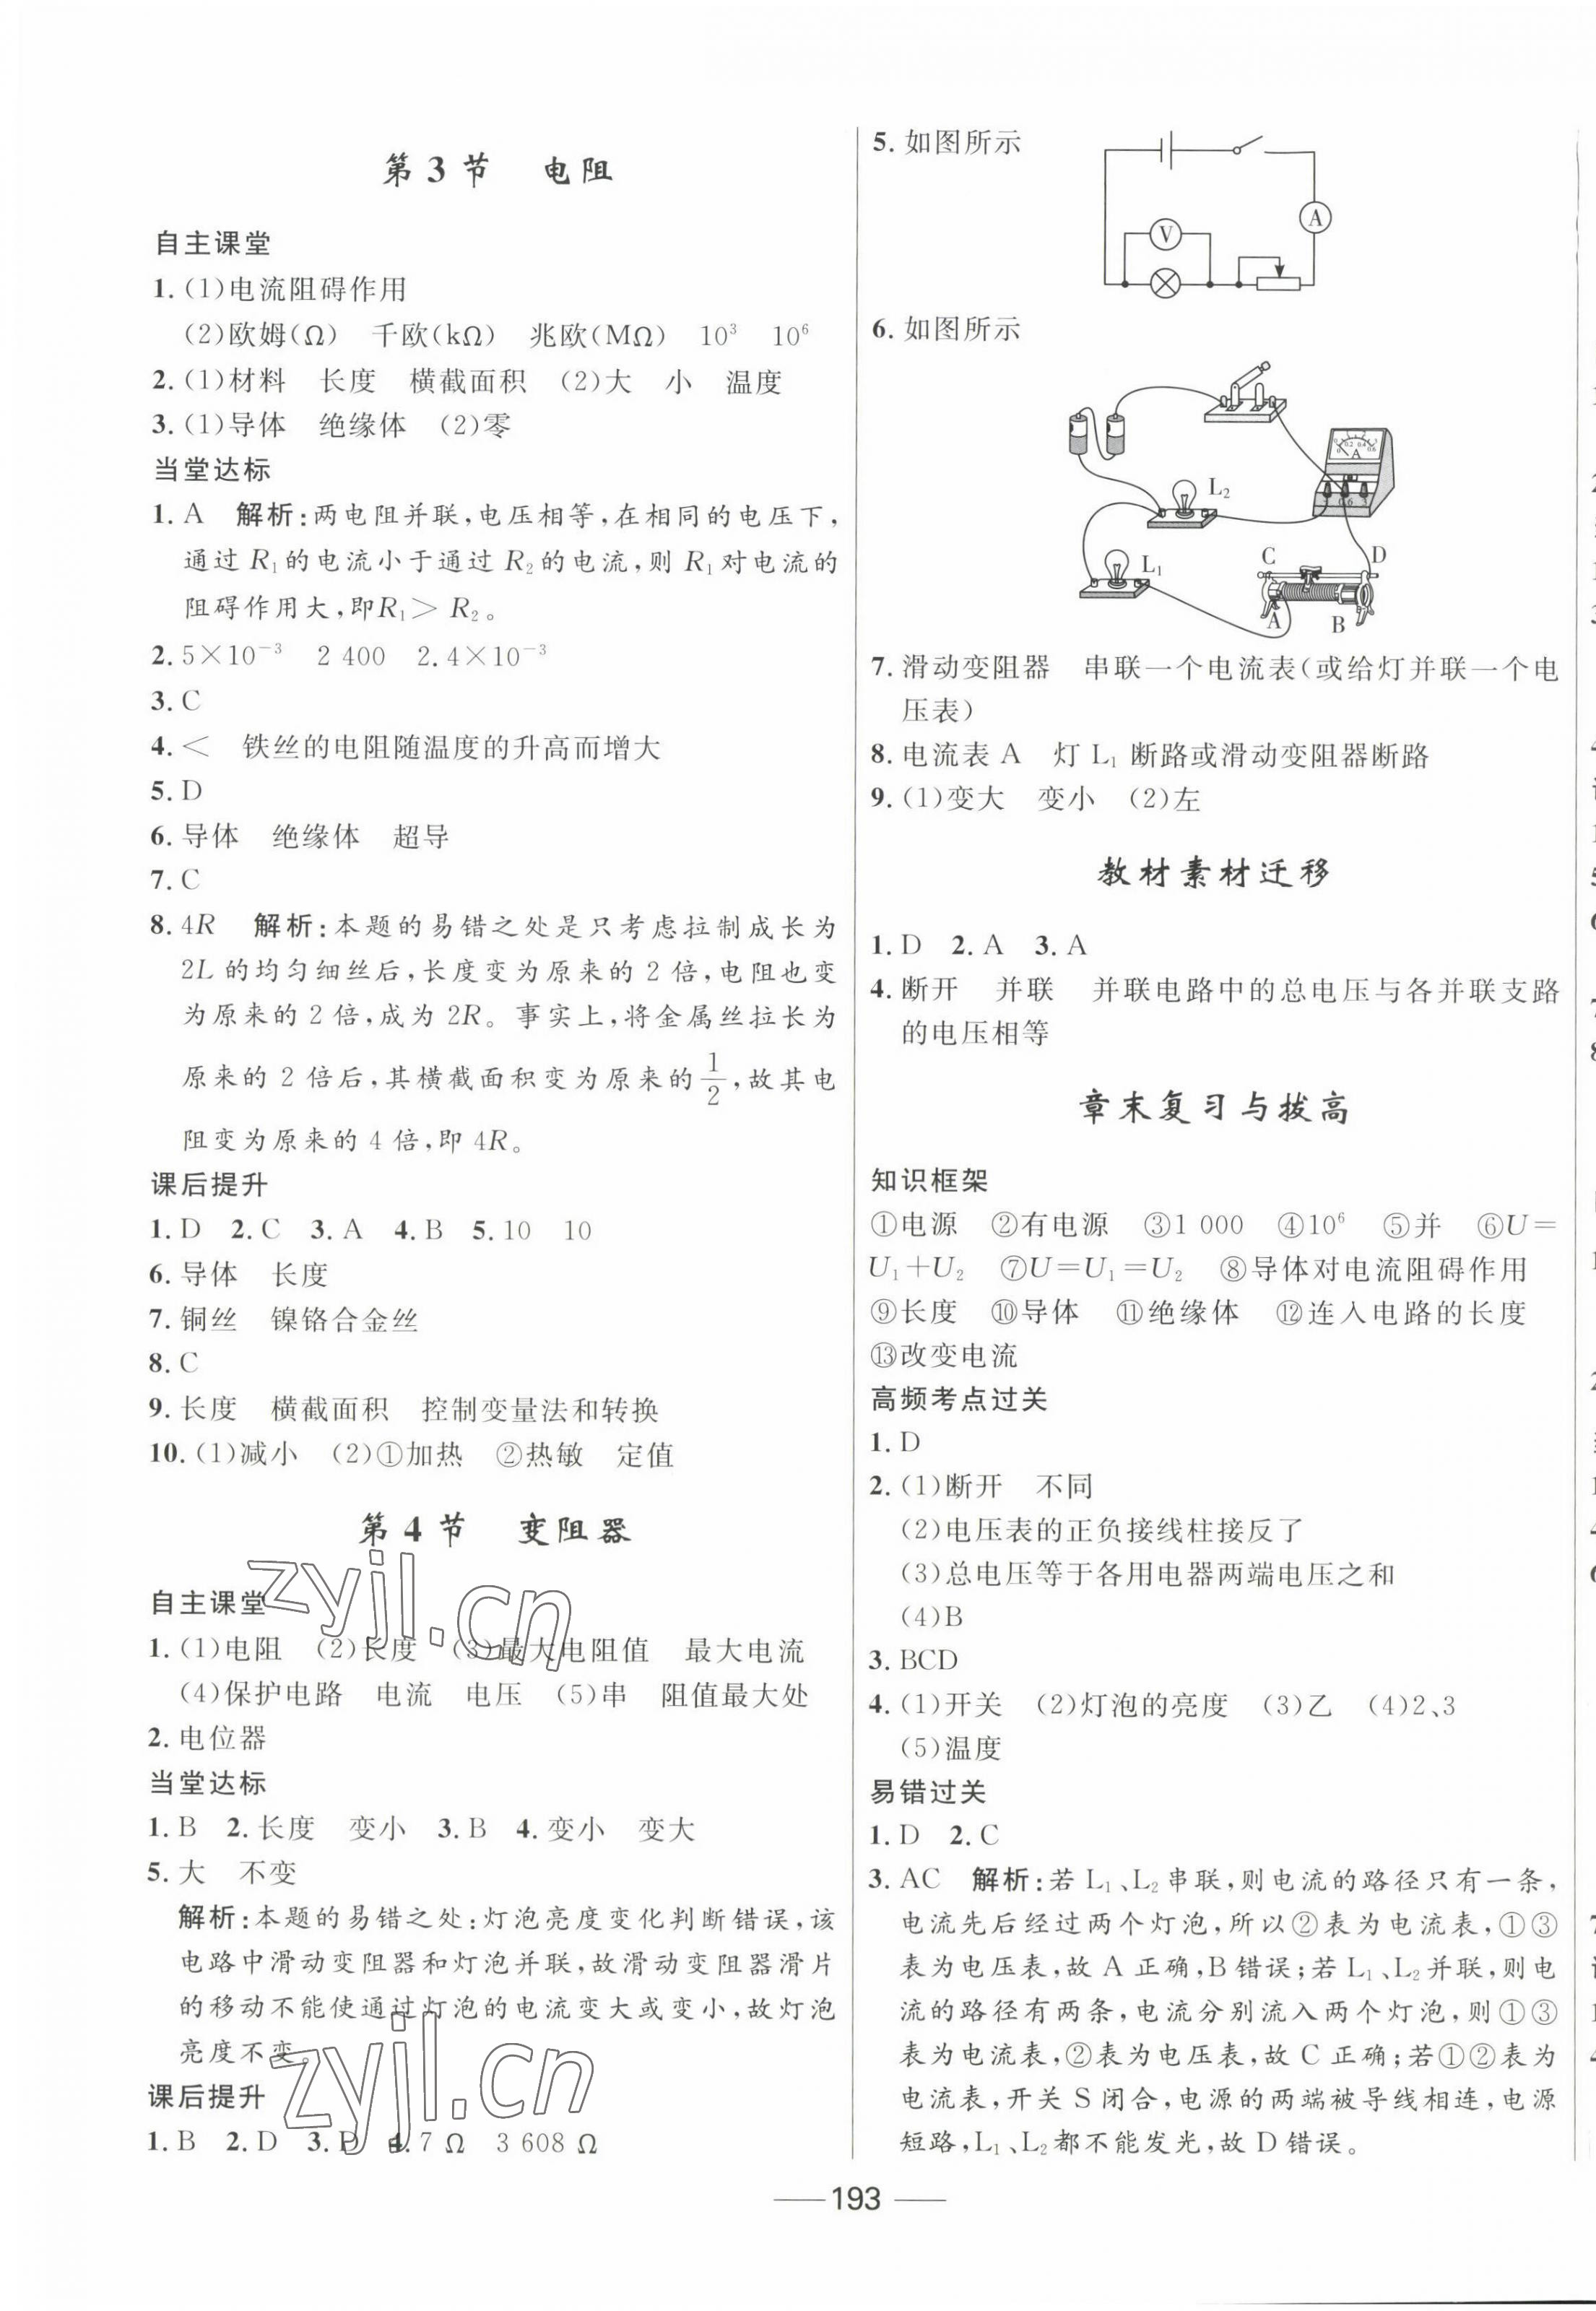 第3节 电阻
自主课堂
1.(1)电流阻碍作用
(2)欧姆(Ω) 千欧(kΩ) 兆欧(MΩ) 10³ 10⁶
2.(1)材料 长度 横截面积 (2)大 小 温度
3.(1)导体 绝缘体 (2)零
当堂达标
1. A 解析:两电阻并联,电压相等,在相同的电压下,
通过R₁的电流小于通过R₂的电流,则R₁对电流的
阻碍作用大,即R₁＞R₂。
2. 5×10⁻³ 2 400 2.4×10⁻³
3. C
4. ＜ 铁丝的电阻随温度的升高而增大
5. D
6. 导体 绝缘体 超导
7. C
8. 4R 解析:本题的易错之处是只考虑拉制成长为
2L的均匀细丝后,长度变为原来的2倍,电阻也变
为原来的2倍,成为2R。事实上,将金属丝拉长为
原来的2倍后,其横截面积变为原来的1/2,故其电
阻变为原来的4倍,即4R。
课后提升
1. D 2. C 3. A 4. B 5. 10 10
6. 导体 长度
7. 铜丝 镍铬合金丝
8. C
9. 长度 横截面积 控制变量法和转换
10.(1)减小 (2)①加热 ②热敏 定值
第4节 变阻器
自主课堂
1.(1)电阻 (2)长度 (3)最大电阻值 最大电流
(4)保护电路 电流 电压 (5)串 阻值最大处
2. 电位器
当堂达标
1. B 2. 长度 变小 3. B 4. 变小 变大
5. 大 不变
解析:本题的易错之处:灯泡亮度变化判断错误,该
电路中滑动变阻器和灯泡并联,故滑动变阻器滑片
的移动不能使通过灯泡的电流变大或变小,故灯泡
亮度不变。
课后提升
1. B 2. D 3. D 4. 7 Ω 3 608 Ω
zyjl.cn
zyjl.cn
5. 如图所示
A
V
6. 如图所示
A
L₂
L₁
C
D
A
B
7. 滑动变阻器 串联一个电流表(或给灯并联一个电
压表)
8. 电流表A 灯L₁断路或滑动变阻器断路
9.(1)变大 变小 (2)左
教材素材迁移
1. D 2. A 3. A
4. 断开 并联 并联电路中的总电压与各并联支路
的电压相等
章末复习与拔高
知识框架
①电源 ②有电源 ③1 000 ④10⁶ ⑤并 ⑥U=
U₁+U₂ ⑦U=U₁=U₂ ⑧导体对电流阻碍作用
⑨长度 ⑩导体 ⑪绝缘体 ⑫连入电路的长度
⑬改变电流
高频考点过关
1. D
2.(1)断开 不同
(2)电压表的正负接线柱接反了
(3)总电压等于各用电器两端电压之和
(4)B
3. BCD
4.(1)开关 (2)灯泡的亮度 (3)乙 (4)2、3
(5)温度
易错过关
1. D 2. C
3. AC 解析:若L₁、L₂串联,则电流的路径只有一条,
电流先后经过两个灯泡,所以②表为电流表,①③
表为电压表,故A正确,B错误;若L₁、L₂并联,则电
流的路径有两条,电流分别流入两个灯泡,则①③
表为电流表,②表为电压表,故C正确;若①②表为
电流表,开关S闭合,电源的两端被导线相连,电源
短路,L₁、L₂都不能发光,故D错误。
193